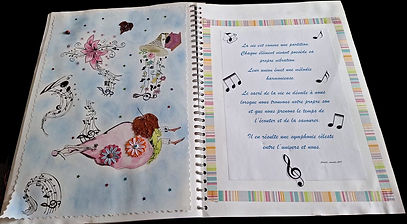 La vie est comme une partition
Chaque élément vivant possède sa
propre vibration
Leur union émet une mélodie
harmonieuse
Le sacré de la vie se dévoile à nous
lorsque nous trouvons notre propre son
et que nous prenons le temps de
l'écouter et de la savourer
Il en résulte une symphonie céleste
entre l'univers et nous.